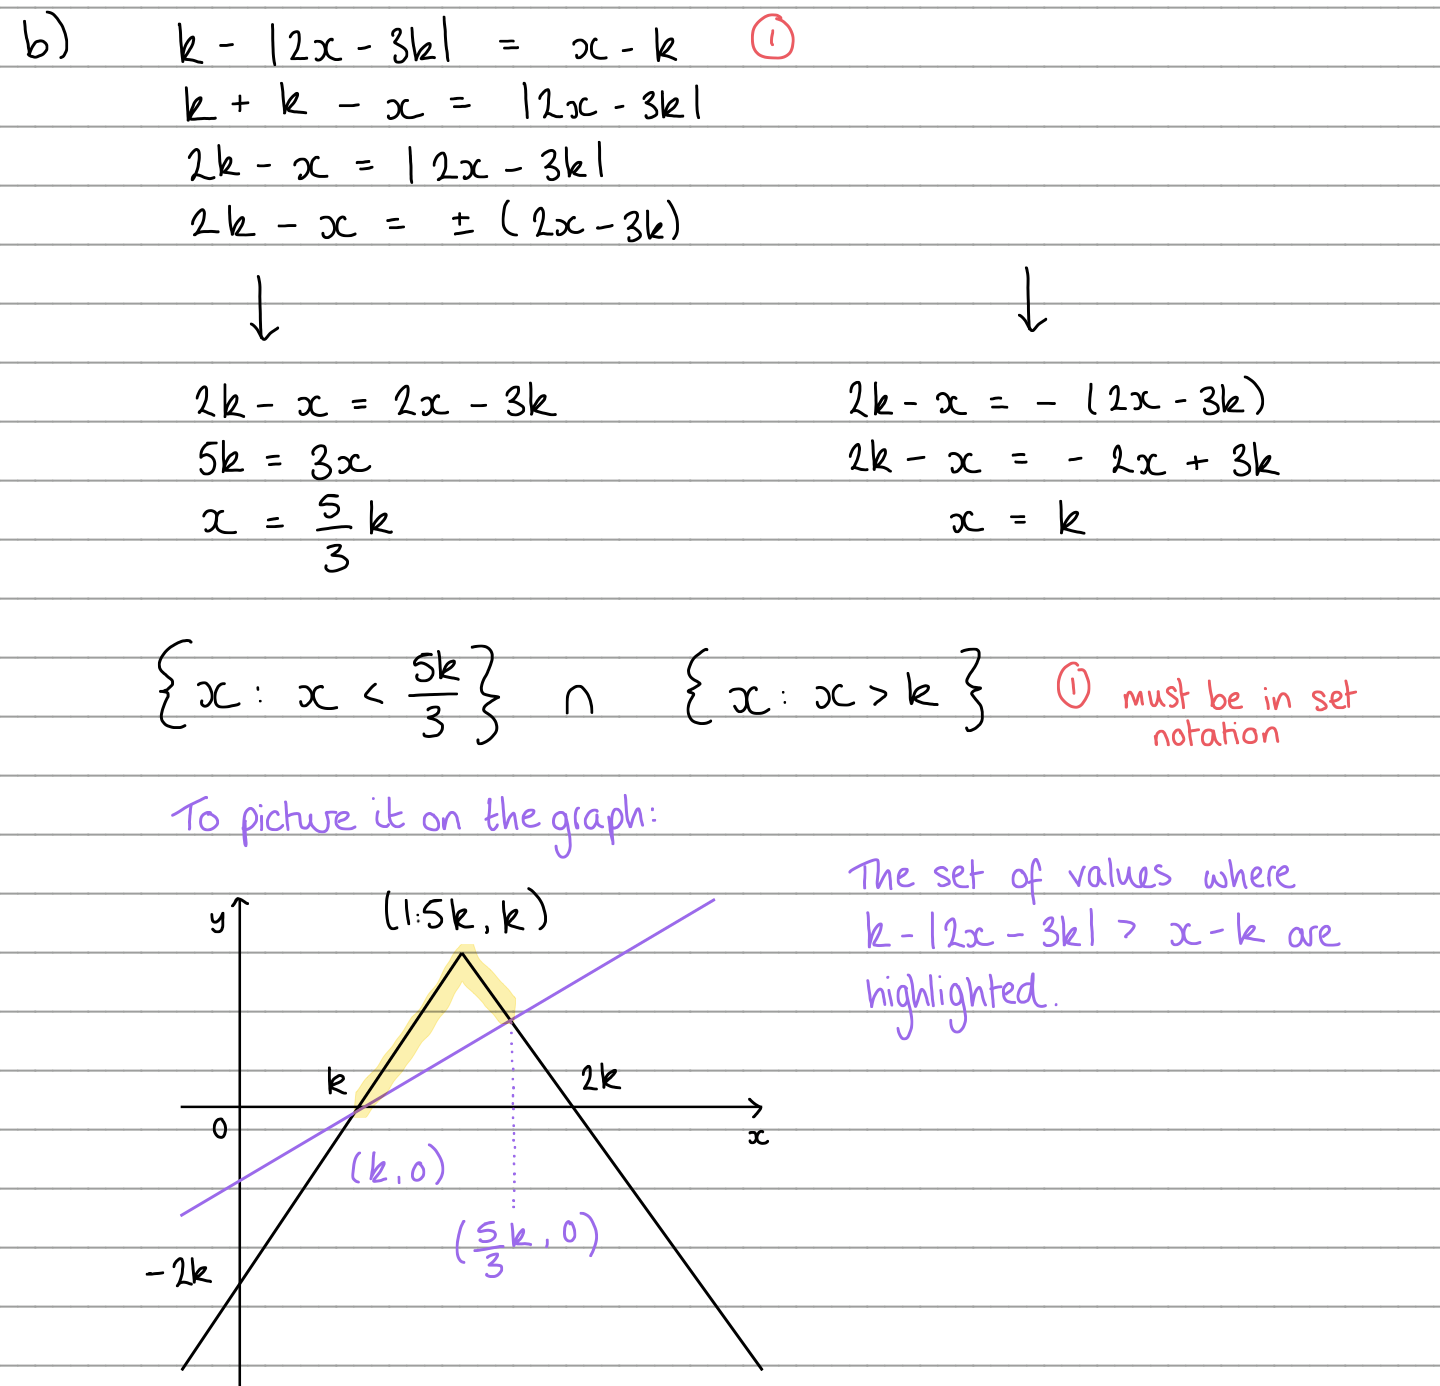 b) k - |2x - 3k| = x - k ①
k + k - x = |2x - 3k|
2k - x = |2x - 3k|
2k - x = ± (2x - 3k)
↓ ↓
2k - x = 2x - 3k
5k = 3x
x = 5/3 k
2k - x = - (2x - 3k)
2k - x = - 2x + 3k
x = k
{x : x < 5k/3} ∩ {x : x > k} ① must be in set
notation
To picture it on the graph:
The set of values where
k - |2x - 3k| > x - k are
highlighted.
y
(1.5k, k)
k
2k
0
x
(k, 0)
(5/3 k, 0)
-2k